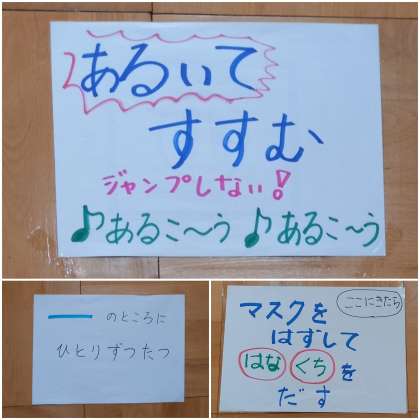 あるいて
すすむ
ジャンプしない!
♪あるこ〜う ♪あるこ〜う
のところに
ひとりずつたつ
ここにきたら
マスクを
はずして
はな くちを
だす